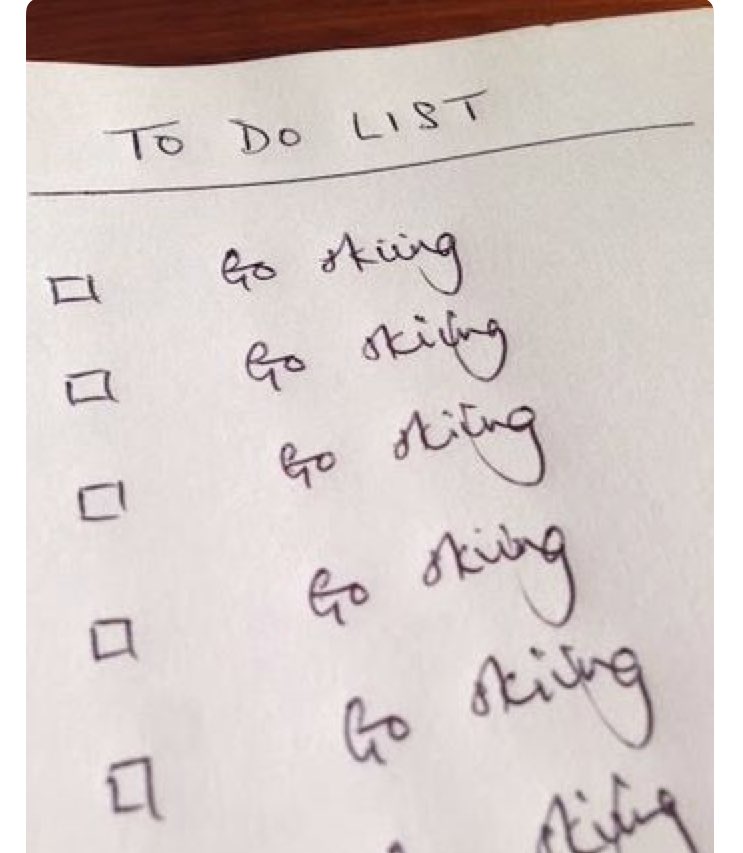 TO DO LIST
Go skiing
Go skiing
Go skiing
Go skiing
Go skiing
skiing